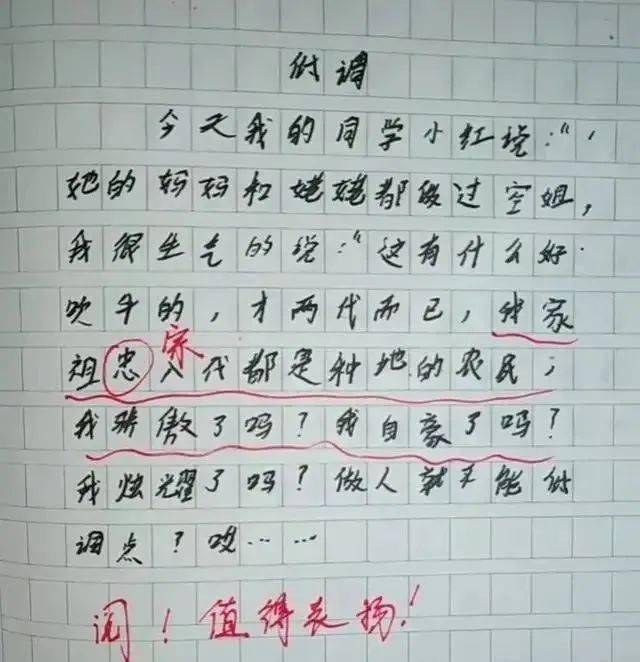 低调
今天我的同学小红说:“
她的妈妈和姥姥都做过空姐,
我很生气的说:“这有什么好
吹牛的,才两代而已,我家
祖忠八代都是种地的农民,
宗
我骄傲了吗?我自豪了吗?
我炫耀了吗?做人就不能低
调点?哎……
阅!值得表扬!